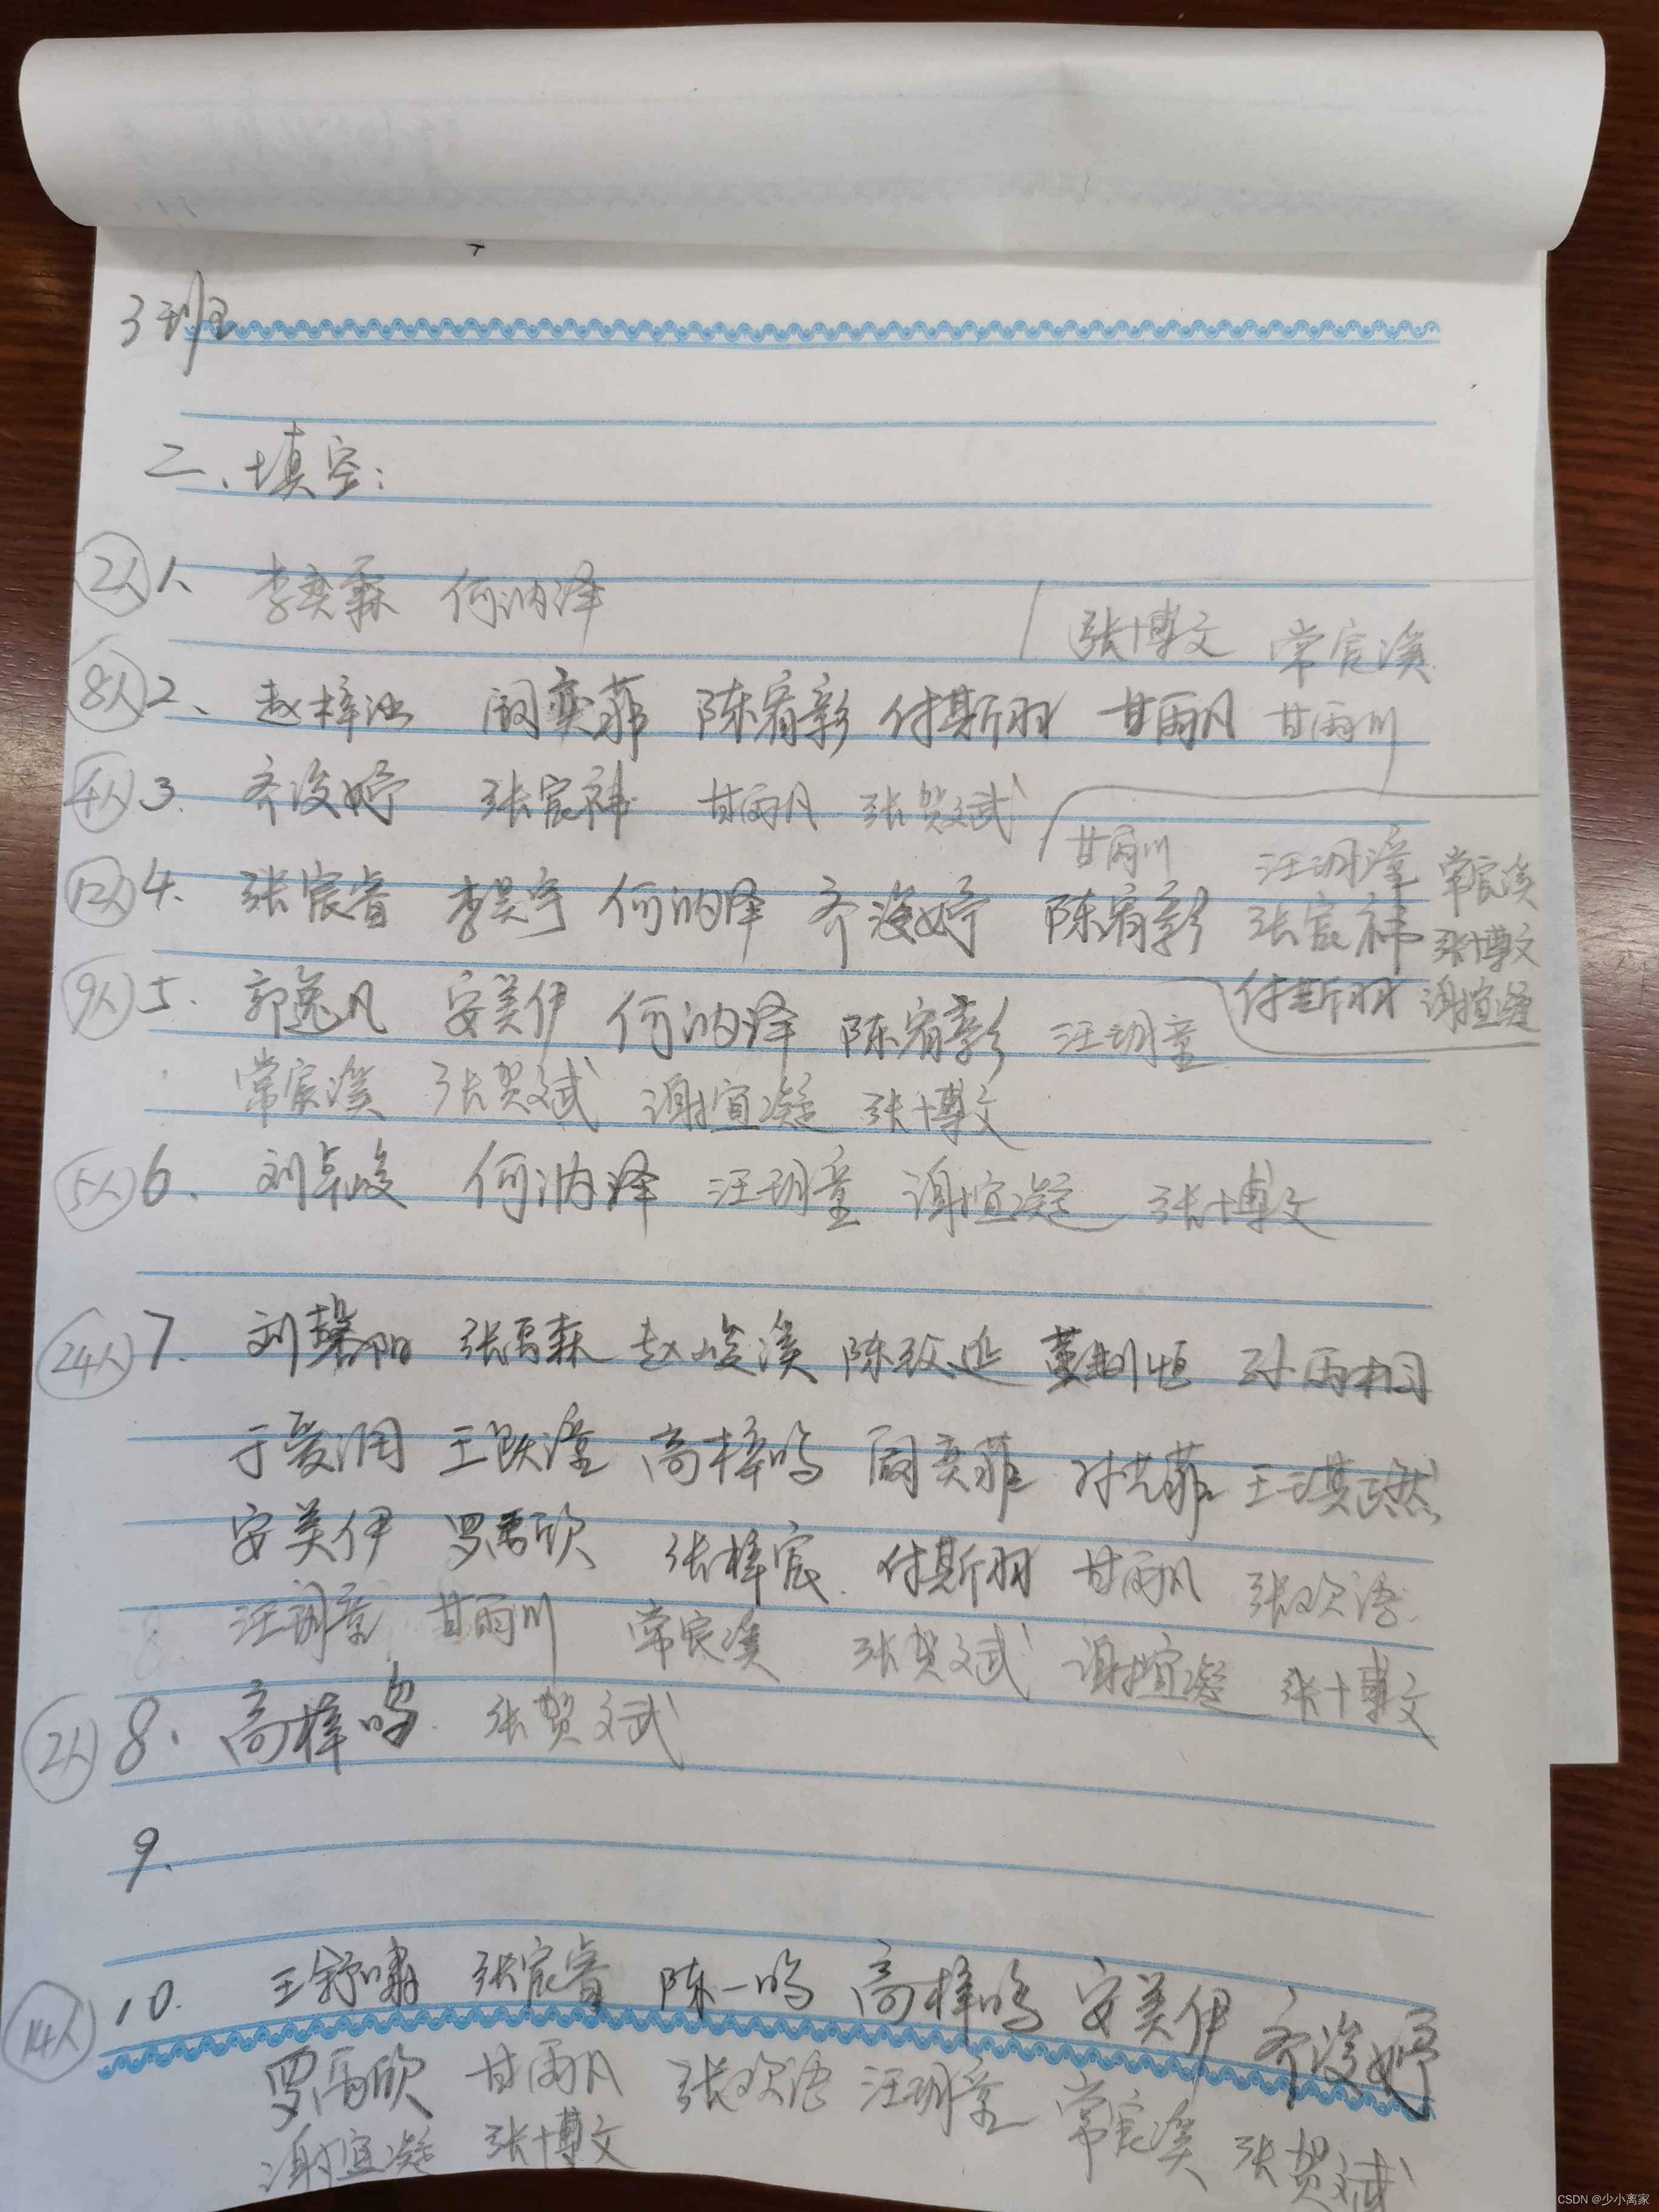 3班
二、填空：
2人 1、 李奕霖 何汭泽
张博文 常宸溪
8人 2、 赵梓汐 阚奕菲 陈宥彰 付斯羽 甘雨凡 甘雨川
4人 3. 齐浚婷 张宸祎 甘雨凡 张贺斌
甘雨川 汪玥潼 常宸溪
12人 4. 张宸睿 李昊宇 何汭泽 齐浚婷 陈宥彰 张宸祎 张博文
付斯羽 谢煊凝
9人 5. 郭逸凡 安美伊 何汭泽 陈宥彰 汪玥童
常宸溪 张贺斌 谢煊凝 张博文
5人 6. 刘卓峻 何汭泽 汪玥童 谢煊凝 张博文
24人 7. 刘馨阳 张禹森 赵峻溪 陈玫延 董恒 孙雨桐
于爱润 王跃滢 高梓鸣 阚奕菲 孙艺菲 王琪然
安美伊 罗禹欣 张梓宸 付斯羽 甘雨凡 张欢语
汪玥童 甘雨川 常宸溪 张贺斌 谢煊凝 张博文
2人 8. 高梓鸣 张贺斌
9.
14人 10. 王舒啸 张宸睿 陈一鸣 高梓鸣 安美伊 齐浚婷
罗禹欣 甘雨凡 张欢语 汪玥童 常宸溪 张贺斌
谢煊凝 张博文
CSDN @少小离家